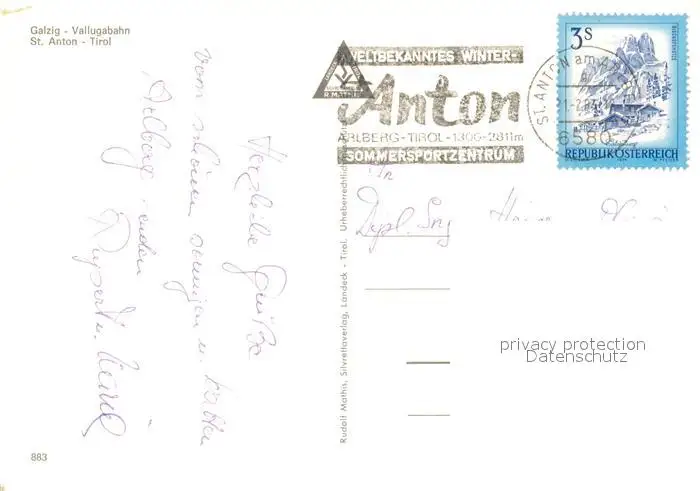 Galzig - Vallugabahn
St. Anton - Tirol
Herzliche Grüße
vom schönen sonnigen u. kalten
Arlberg senden
Rupert u.
883
Rudolf Mathis, Silvrettaverlag, Landeck - Tirol. Urheberrechtlich
WELTBEKANNTES WINTER-
Anton
ARLBERG-TIROL-1300-2811m
SOMMERSPORTZENTRUM
R.MATHIS
ST. ANTON am
6580
3S
REPUBLIK ÖSTERREICH
Dypl. Ing
privacy protection
Datenschutz